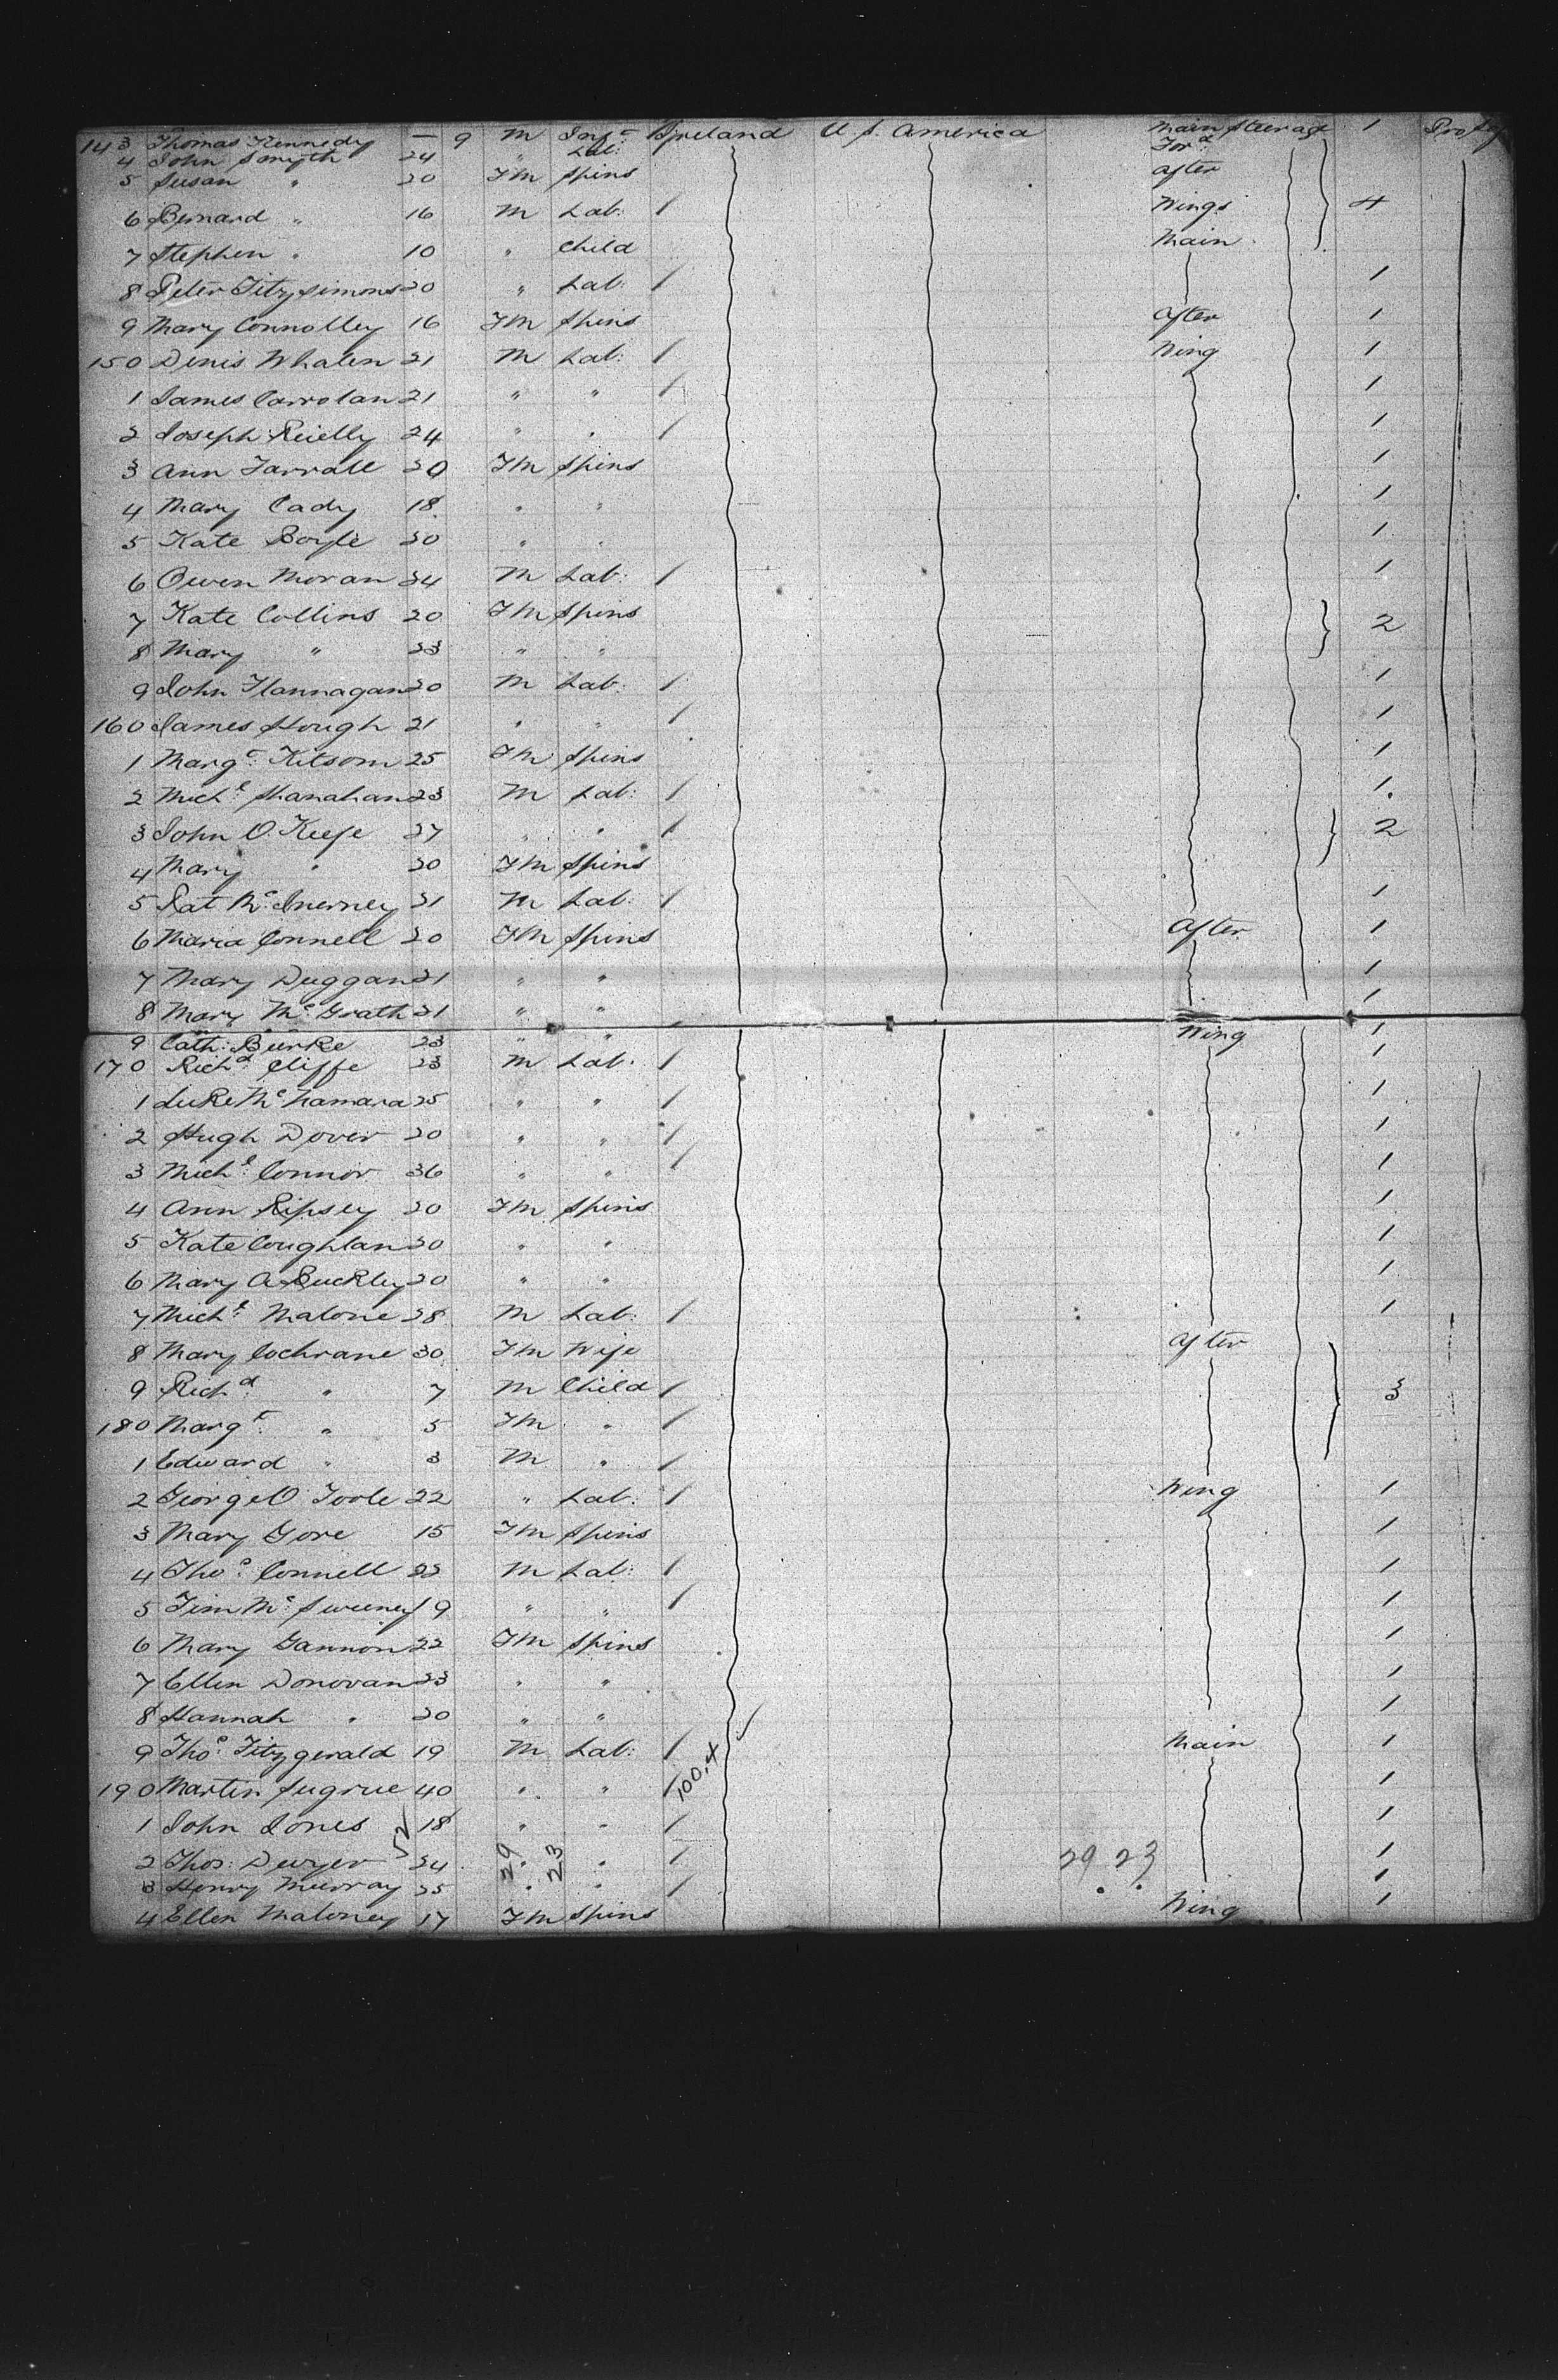 143 Thomas Kennedy — 9 M Inft Ireland U.S. America Main Steerage 1
4 John Smyth 24 " Lab: Ford
5 Susan " 20 Fm Spins After
6 Bernard " 16 M Lab: / Wings 4
7 Stephen " 10 " Child Main
8 Peter Fitzsimons 20 " Lab: / 1
9 Mary Connolley 16 Fm Spins After 1
150 Denis Whalen 21 M Lab: / Wing 1
1 James Carrolan 21 " " / 1
2 Joseph Reielly 24 " " / 1
3 Ann Farrall 20 Fm Spins 1
4 Mary Cady 18 " " 1
5 Kate Boyle 20 " " 1
6 Owen Moran 24 M Lab: / 1
7 Kate Collins 20 Fm Spins 2
8 Mary " 23 " "
9 John Flannagan 20 M Lab: / 1
160 James Hough 21 " " / 1
1 Margt Kitsom 25 Fm Spins 1
2 Michl Shanahan 23 M Lab: / 1
3 John O'Keefe 27 " " / 2
4 Mary " 20 Fm Spins
5 Pat Mc Inerney 21 M Lab: / 1
6 Maria Connell 20 Fm Spins After 1
7 Mary Duggan 21 " " 1
8 Mary McGrath 21 " " 1
9 Cath: Burke 23 " " Wing 1
170 Richd Cliffe 23 M Lab: / 1
1 Luke McNamara 25 " " / 1
2 Hugh Dover 20 " " / 1
3 Michl Connor 36 " " / 1
4 Ann Ripsey 20 Fm Spins 1
5 Kate Coughlan 20 " " 1
6 Mary A Buckley 20 " " 1
7 Michl Malone 28 M Lab: / 1
8 Mary Cochrane 30 Fm Wife After
9 Richd " 7 M Child / 3
180 Margt " 5 Fm " /
1 Edward " 3 M " /
2 George O'Toole 22 " Lab: / Wing 1
3 Mary Gore 15 Fm Spins 1
4 Thos Connell 22 M Lab: / 1
5 Tim McSweeney 19 " " / 1
6 Mary Gannon 22 Fm Spins 1
7 Ellen Donovan 23 " " 1
8 Hannah " 20 " " 1
9 Thos Fitzgerald 19 M Lab: / Main 1
190 Martin Sugrue 40 " " / 100.4 1
1 John Jones 18 " " / 1
2 Thos: Dwyer 52 24 29 " 23 " / 29 23 1
3 Henry Murray 25 " " / 1
4 Ellen Maloney 17 Fm Spins Wing 1